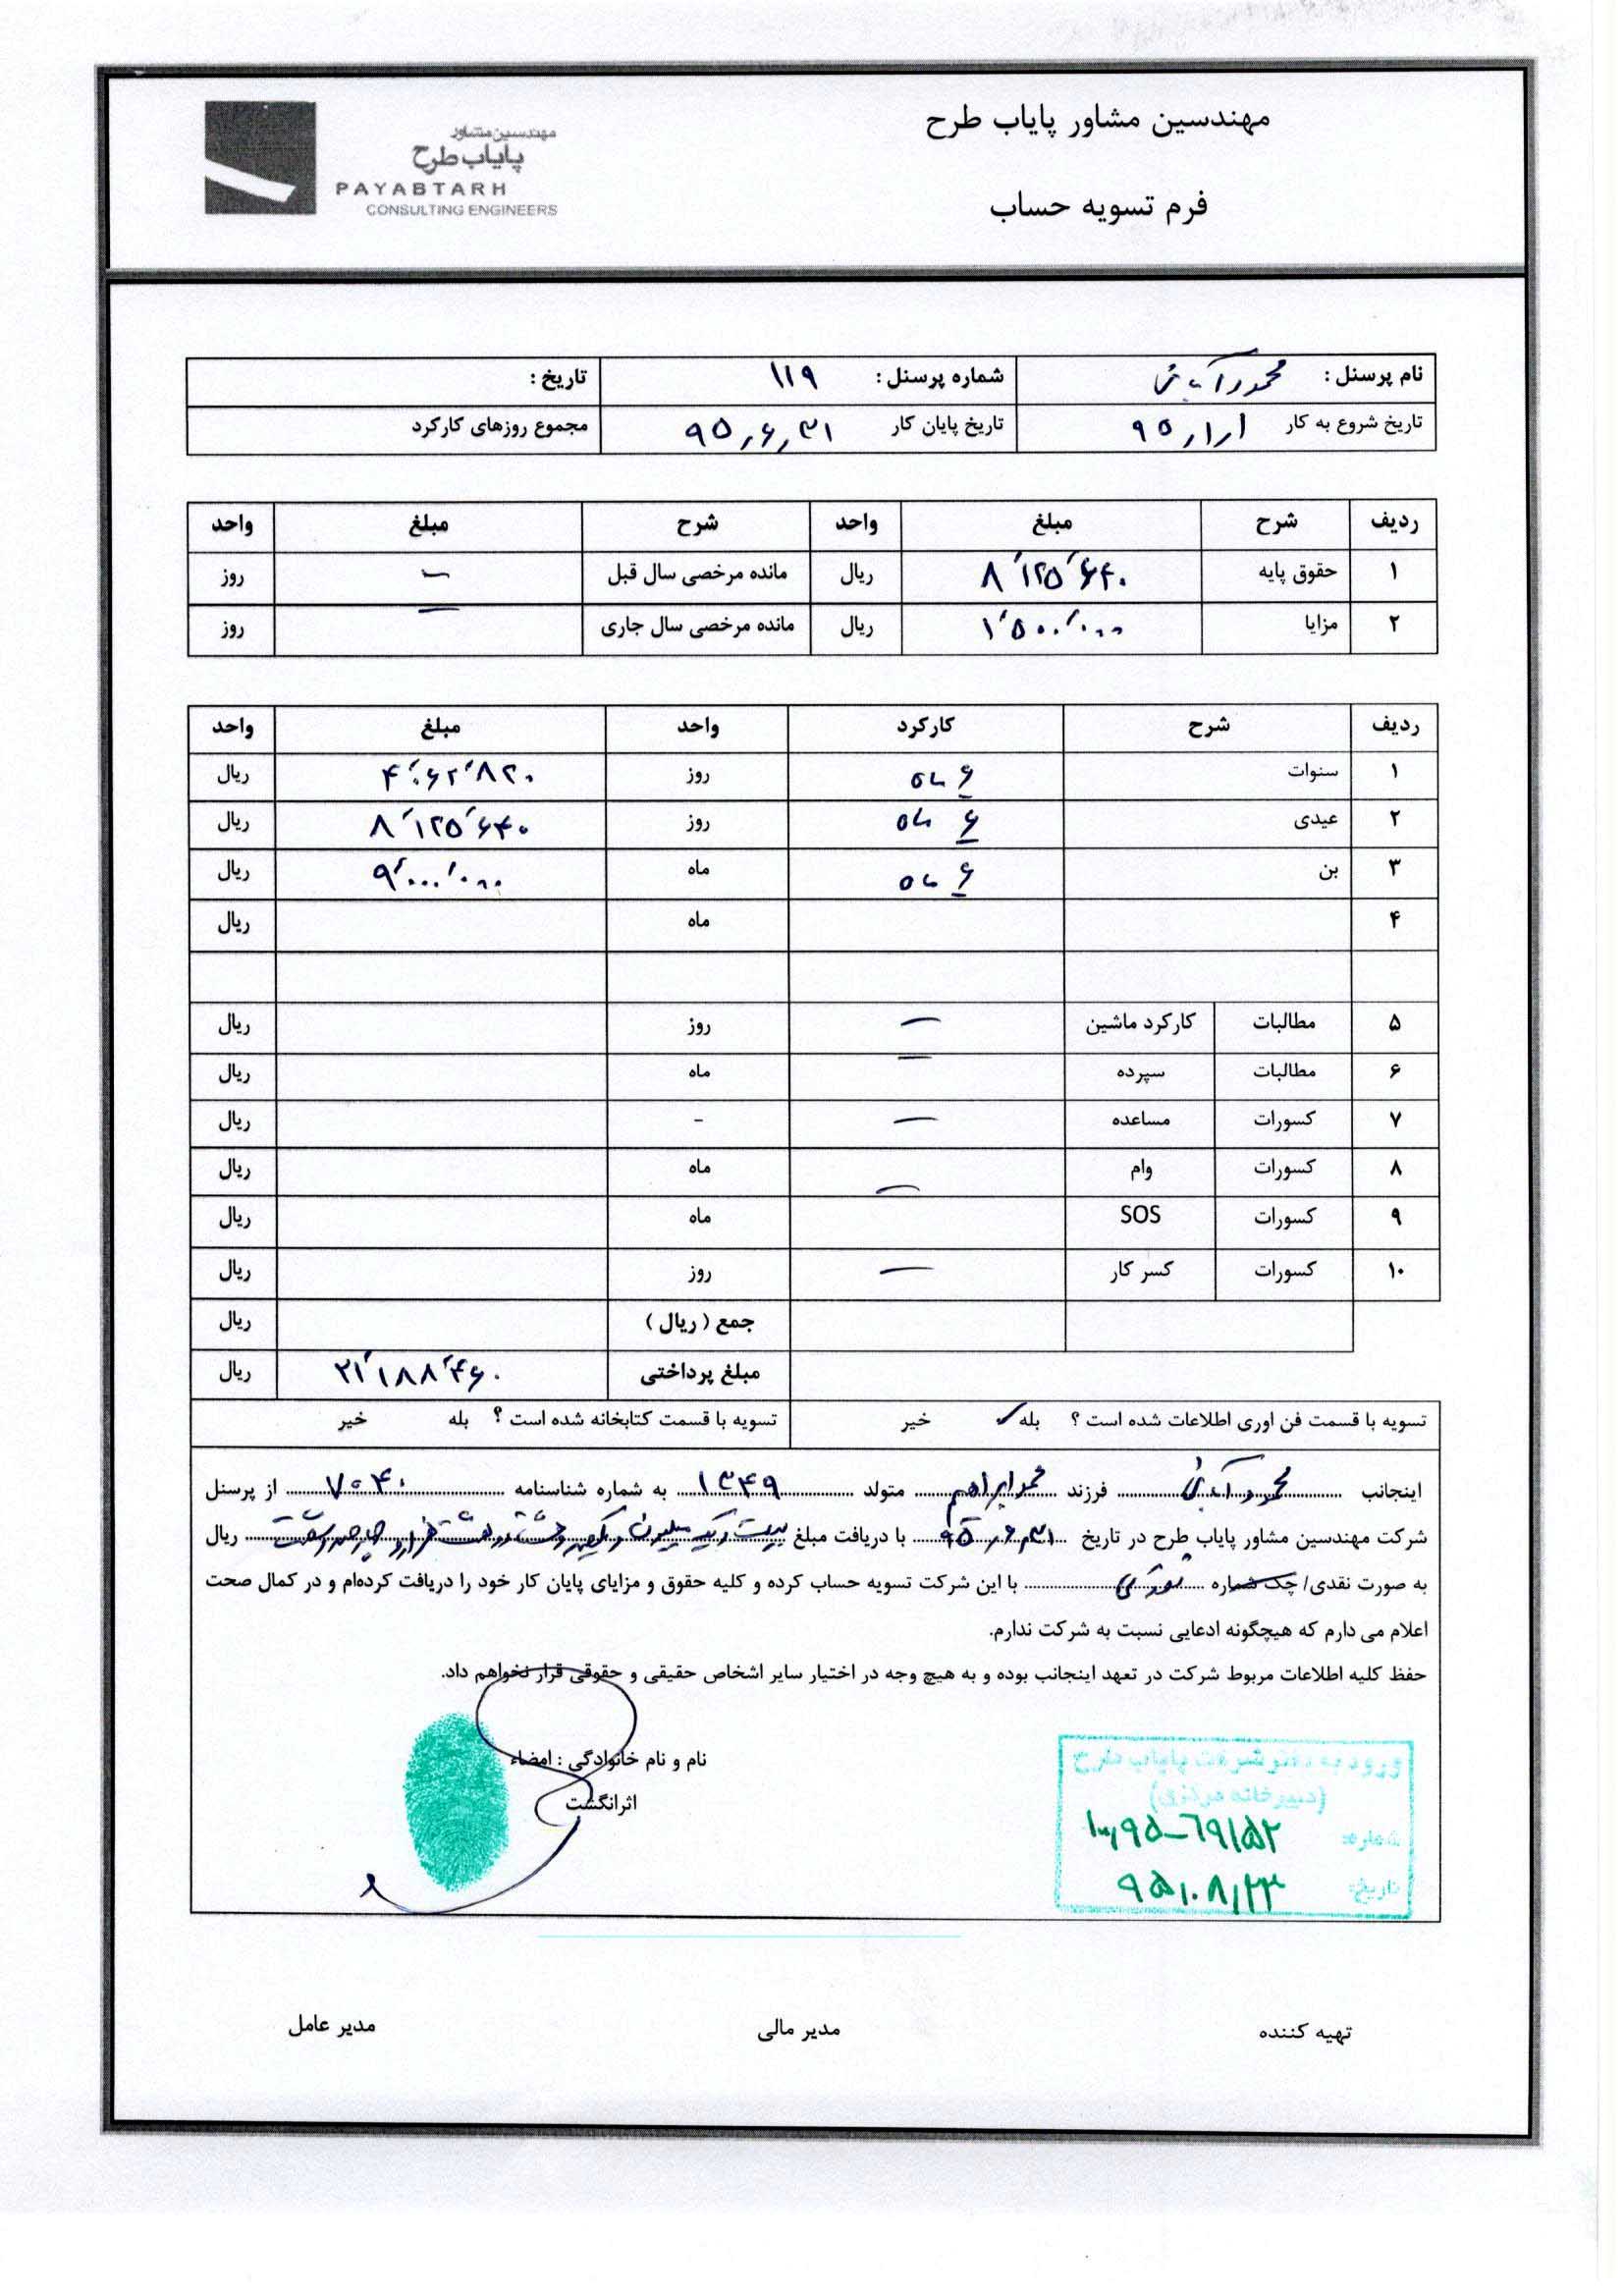 مهندسین مشاور پایاب طرح
مهندسین مشاور
پایاب طرح
PAYABTARH
CONSULTING ENGINEERS
فرم تسویه حساب
نام پرسنل : محمود شماره پرسنل : ۱۱۹ تاریخ :
تاریخ شروع به کار ۹۵٫۱٫۱ تاریخ پایان کار ۹۵٫۶٫۳۱ مجموع روزهای کارکرد
ردیف شرح مبلغ واحد شرح مبلغ واحد
۱ حقوق پایه ۸٬۱۲۵٬۶۴۰ ریال مانده مرخصی سال قبل — روز
۲ مزایا ۱٬۵۰۰٬۰۰۰ ریال مانده مرخصی سال جاری — روز
ردیف شرح کارکرد واحد مبلغ واحد
۱ سنوات ۶ ماه روز ۴٬۰۶۲٬۸۲۰ ریال
۲ عیدی ۶ ماه روز ۸٬۱۲۵٬۶۴۰ ریال
۳ بن ۶ ماه ماه ۹٬۰۰۰٬۰۰۰ ریال
۴ ماه ریال
۵ مطالبات کارکرد ماشین — روز ریال
۶ مطالبات سپرده — ماه ریال
۷ کسورات مساعده — - ریال
۸ کسورات وام — ماه ریال
۹ کسورات SOS ماه ریال
۱۰ کسورات کسر کار — روز ریال
جمع ( ریال ) ریال
مبلغ پرداختی ۲۱٬۱۸۸٬۴۶۰ ریال
تسویه با قسمت فن اوری اطلاعات شده است ؟ بله ✓ خیر تسویه با قسمت کتابخانه شده است ؟ بله خیر
اینجانب محمود فرزند محمدابراهیم متولد ۱۳۴۹ به شماره شناسنامه ۷۰۴۰ از پرسنل
شرکت مهندسین مشاور پایاب طرح در تاریخ ۹۵٫۶٫۳۱ با دریافت مبلغ بیست و یک میلیون و یکصد و هشتاد و هشت هزار و چهارصد و شصت ریال
به صورت نقدی/ چک شماره با این شرکت تسویه حساب کرده و کلیه حقوق و مزایای پایان کار خود را دریافت کرده‌ام و در کمال صحت
اعلام می دارم که هیچگونه ادعایی نسبت به شرکت ندارم.
حفظ کلیه اطلاعات مربوط شرکت در تعهد اینجانب بوده و به هیچ وجه در اختیار سایر اشخاص حقیقی و حقوقی قرار نخواهم داد.
نام و نام خانوادگی : امضاء
اثرانگشت
ورود به دفتر شرکت پایاب طرح
(دبیرخانه مرکزی)
شماره:
تاریخ: ۹۵٫۰۸٫۲۳
تهیه کننده مدیر مالی مدیر عامل